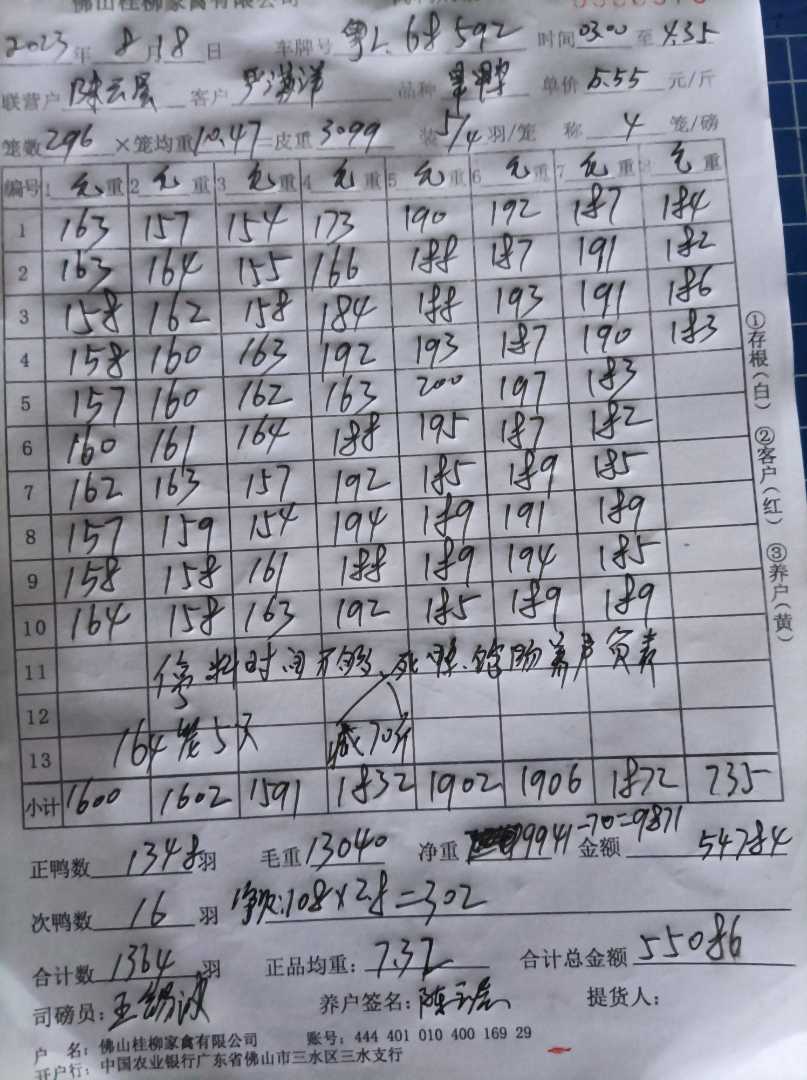 佛山桂柳家禽有限公司
2023年8月18日 车牌号 粤L.68592 时间03.00至4.35
联营户 陈云层 客户 品种 单价5.55元/斤
笼数296×笼均重10.47=皮重3099 装5/4羽/笼 称4笼/磅
编号 1毛重 2毛重 3毛重 4毛重 5毛重 6毛重 7毛重 8毛重
1 163 157 154 173 190 192 187 184
2 163 164 155 166 188 187 191 182
3 158 162 158 184 188 193 191 186
4 158 160 163 192 193 187 190 183
5 157 160 162 163 200 197 183
6 160 161 164 188 195 187 182
7 162 163 157 192 185 189 185
8 157 159 154 194 189 191 189
9 158 158 161 188 189 194 185
10 164 158 163 192 185 189 189
11 停料时间不够,死 养户负责
12
13 164笼5只 减70斤
小计 1600 1602 1591 1832 1902 1906 1872 735
正鸭数1348羽 毛重13040 净重9941-70=9871 金额54784
次鸭数16羽 净次:108×2.8=302
合计数1364羽 正品均重:7.32 合计总金额55086
司磅员:王锡波 养户签名:陈云层 提货人:
户 名:佛山桂柳家禽有限公司 账号:444 401 010 400 169 29
开户行:中国农业银行广东省佛山市三水区三水支行
①存根(白) ②客户(红) ③养户(黄)